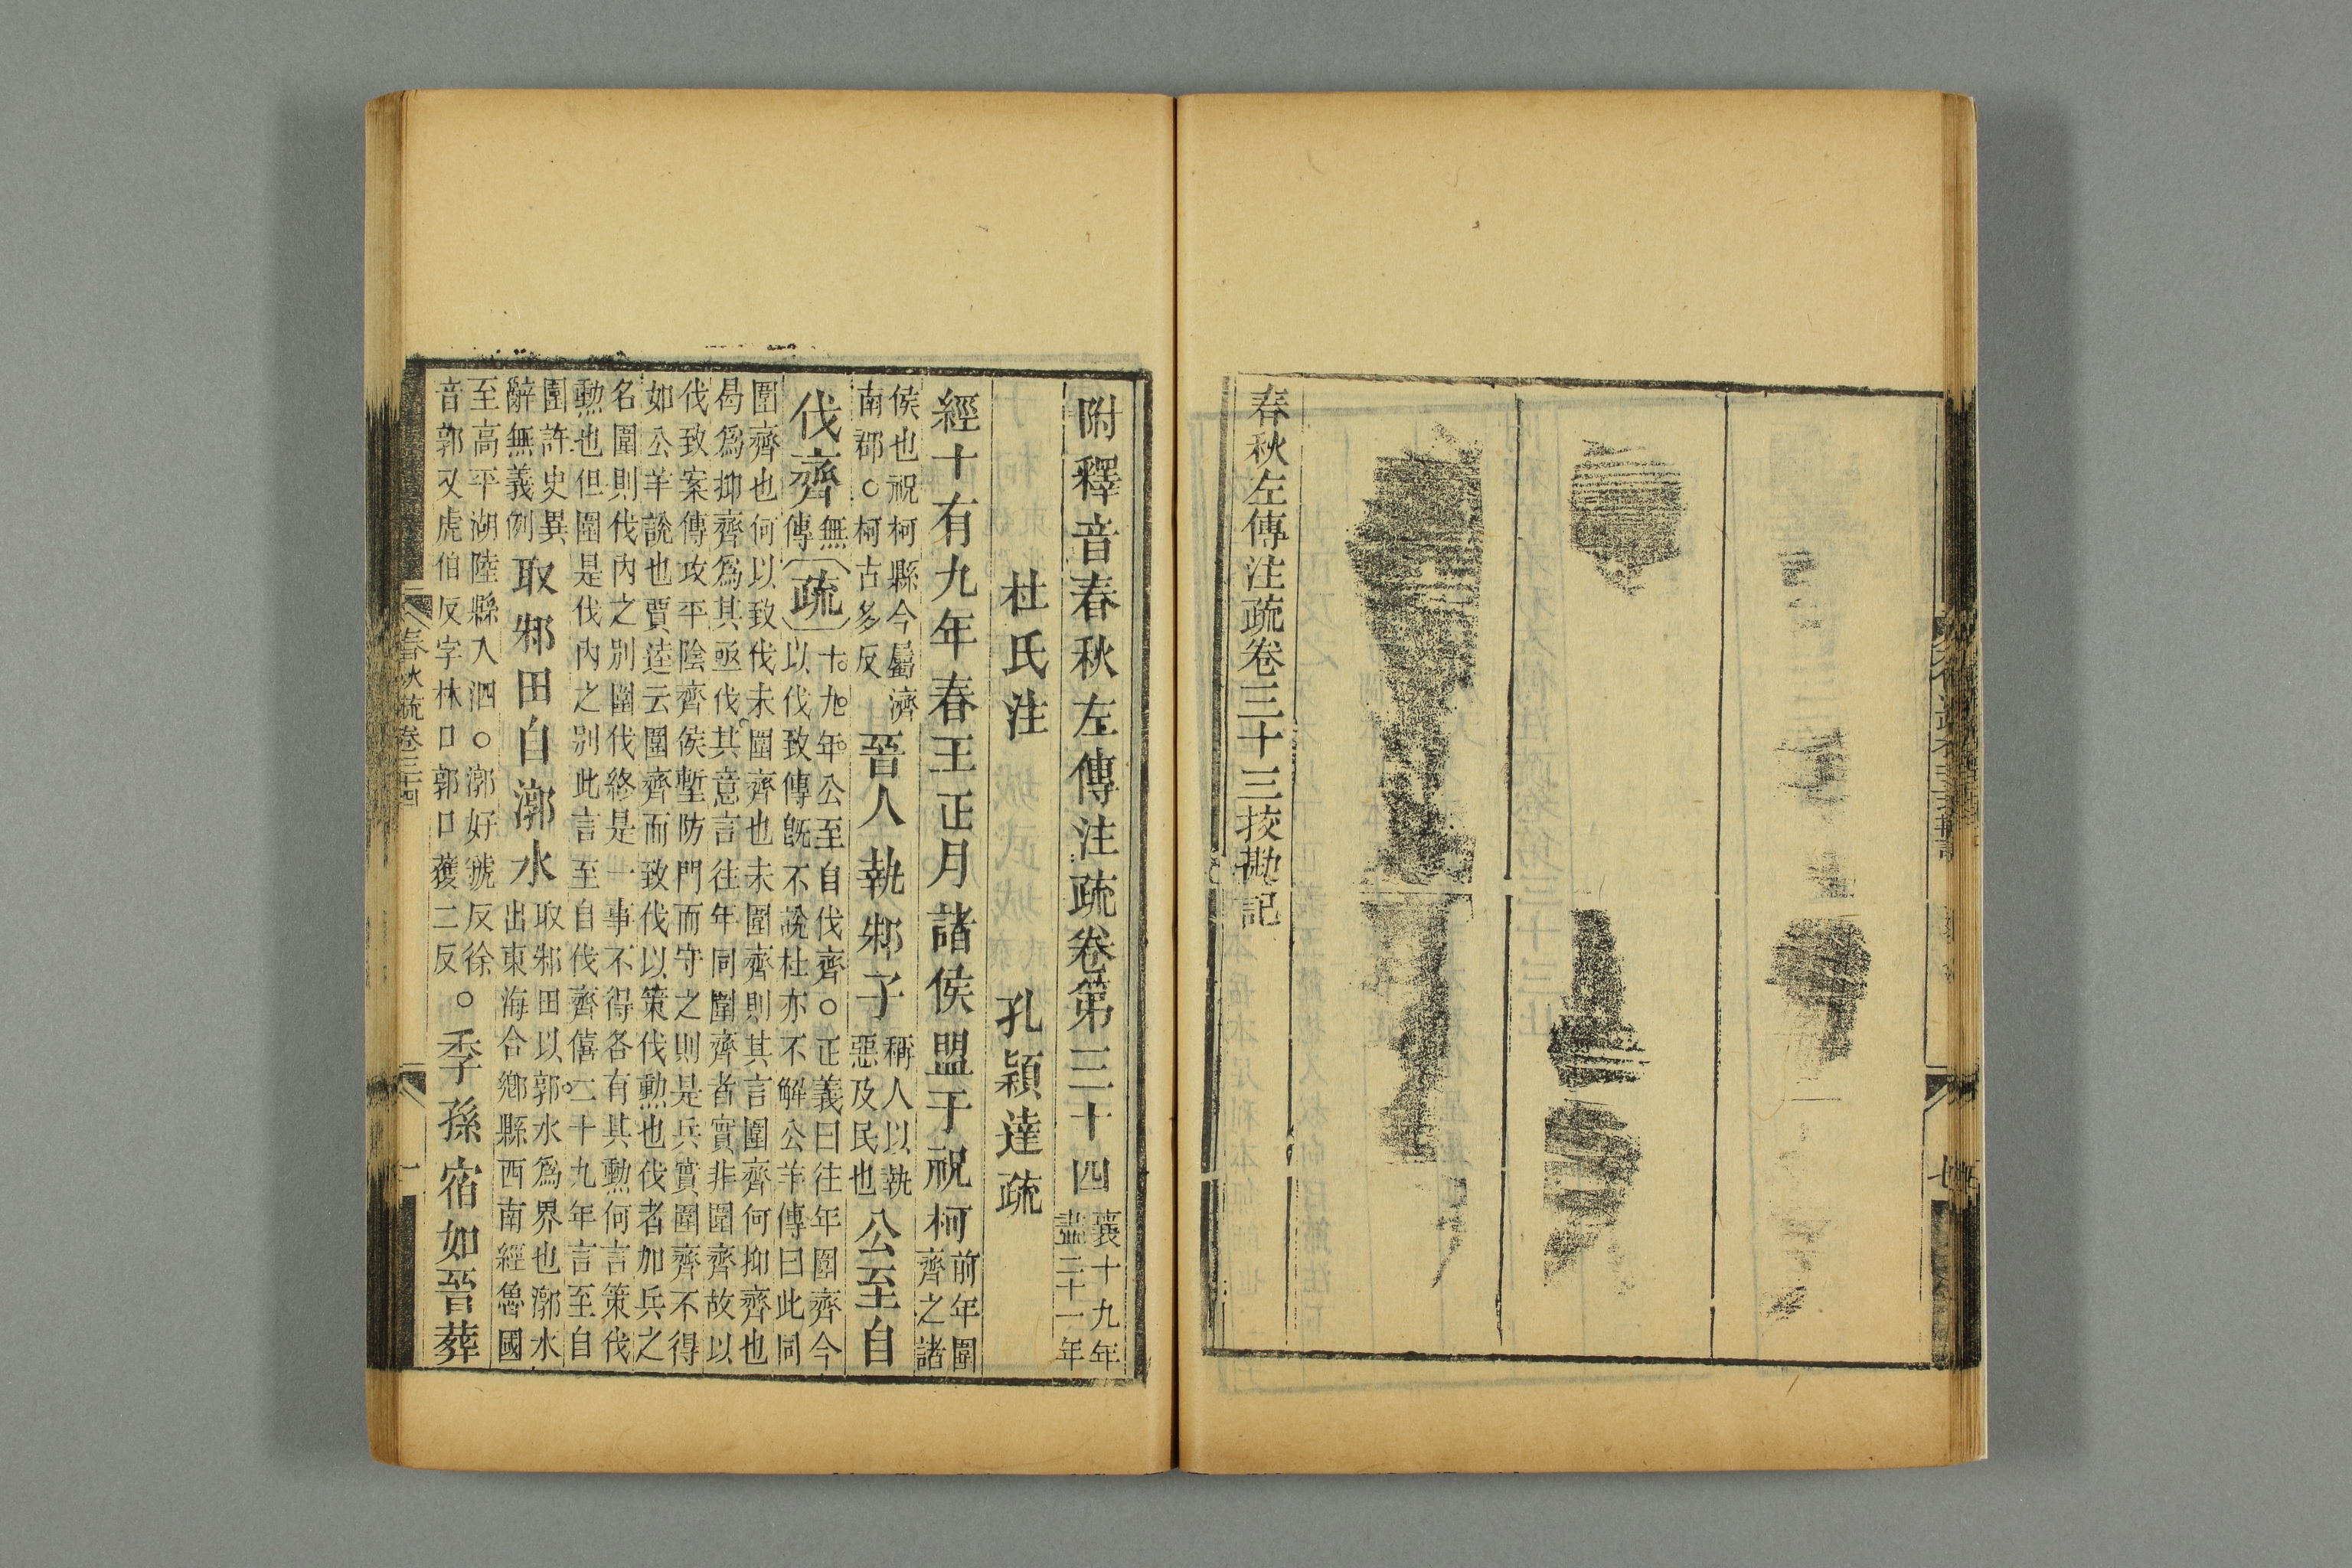 春秋左傳注疏卷三十三挍勘記
附釋音春秋左傳注疏卷第三十四
襄十九年
盡二十一年
杜氏注 孔穎達疏
經十有九年春王正月諸侯盟于祝柯
前年圍
齊之諸
侯也祝柯縣今屬濟
南郡○柯古多反
晉人執邾子
稱人以執
惡及民也
公至自
伐齊
無
傳
疏
十九年公至自伐齊○正義曰往年圍齊今
以伐致傳旣不說杜亦不解公羊傳曰此同
圍齊也何以致伐未圍齊也未圍齊則其言圍齊何抑齊也
曷爲抑齊爲其亟伐其意言往年同圍齊者實非圍齊故以
伐致案傳攻平陰齊侯塹防門而守之則是兵實圍齊不得
如公羊說也賈逵云圍齊而致伐以策伐勲也伐者加兵之
名圍則伐內之別圍伐終是一事不得各有其勲何言策伐
勲也但圍是伐內之別此言至自伐齊僖二十九年言至自
圍許史異
辭無義例
取邾田自漷水
取邾田以郭水爲界也漷水
出東海合鄉縣西南經魯國
至高平湖陸縣入泗○漷好虢反徐
音郭又虎伯反字林口郭口獲二反
○季孫宿如晉葬
春秋疏卷三十四
一